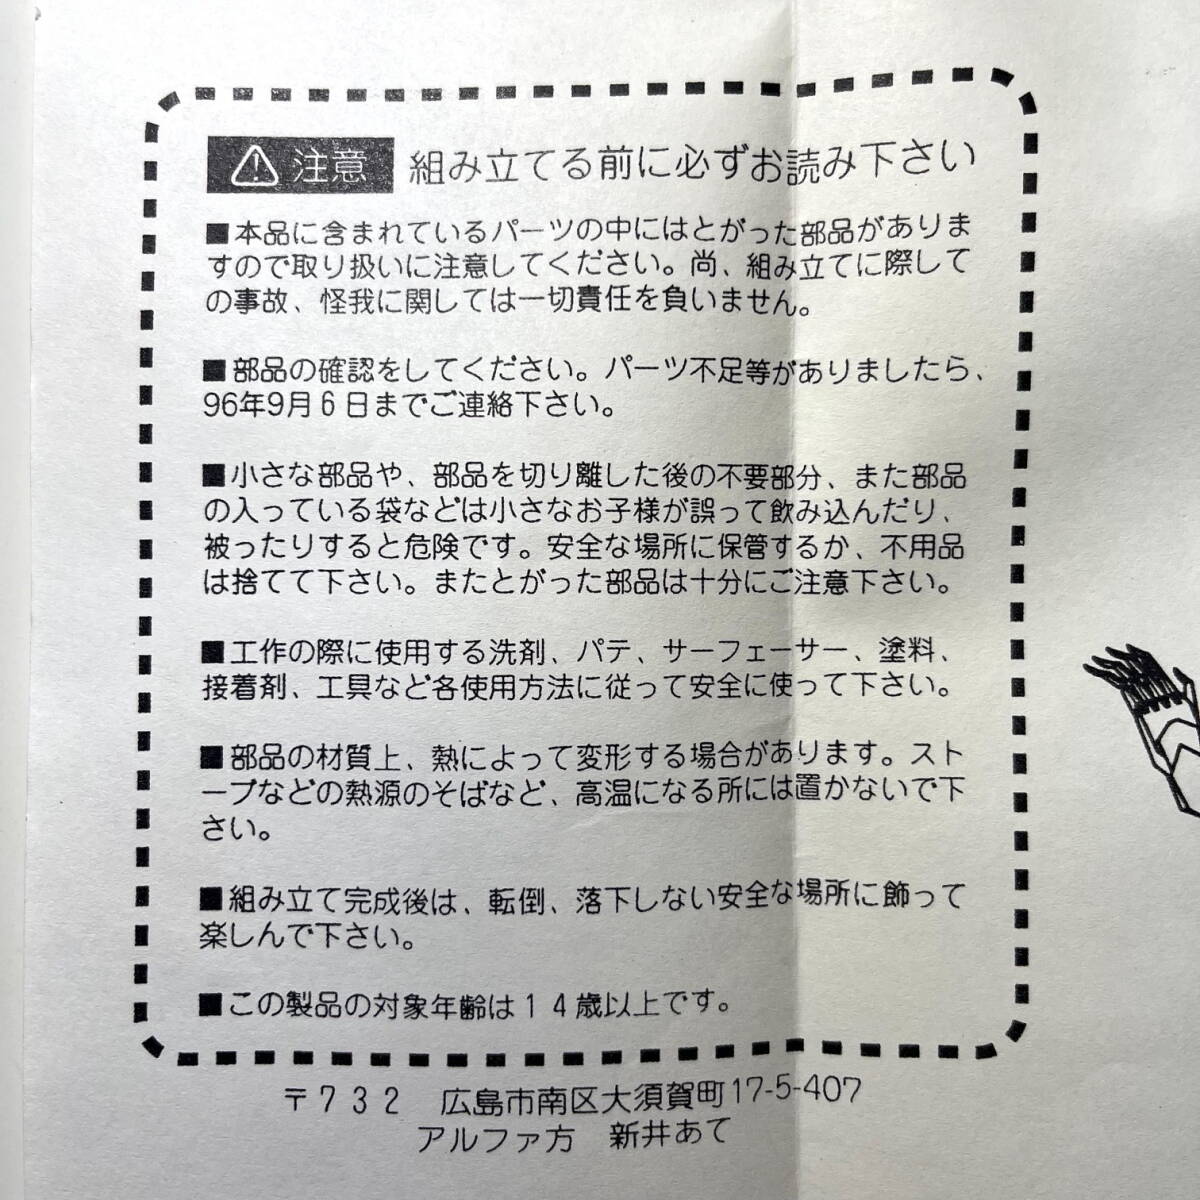 ⚠注意 組み立てる前に必ずお読み下さい
■本品に含まれているパーツの中にはとがった部品がありま
すので取り扱いに注意してください。尚、組み立てに際して
の事故、怪我に関しては一切責任を負いません。
■部品の確認をしてください。パーツ不足等がありましたら、
96年9月6日までご連絡下さい。
■小さな部品や、部品を切り離した後の不要部分、また部品
の入っている袋などは小さなお子様が誤って飲み込んだり、
被ったりすると危険です。安全な場所に保管するか、不用品
は捨てて下さい。またとがった部品は十分にご注意下さい。
■工作の際に使用する洗剤、パテ、サーフェーサー、塗料、
接着剤、工具など各使用方法に従って安全に使って下さい。
■部品の材質上、熱によって変形する場合があります。スト
ーブなどの熱源のそばなど、高温になる所には置かないで下
さい。
■組み立て完成後は、転倒、落下しない安全な場所に飾って
楽しんで下さい。
■この製品の対象年齢は14歳以上です。
〒732 広島市南区大須賀町17-5-407
アルファ方 新井あて